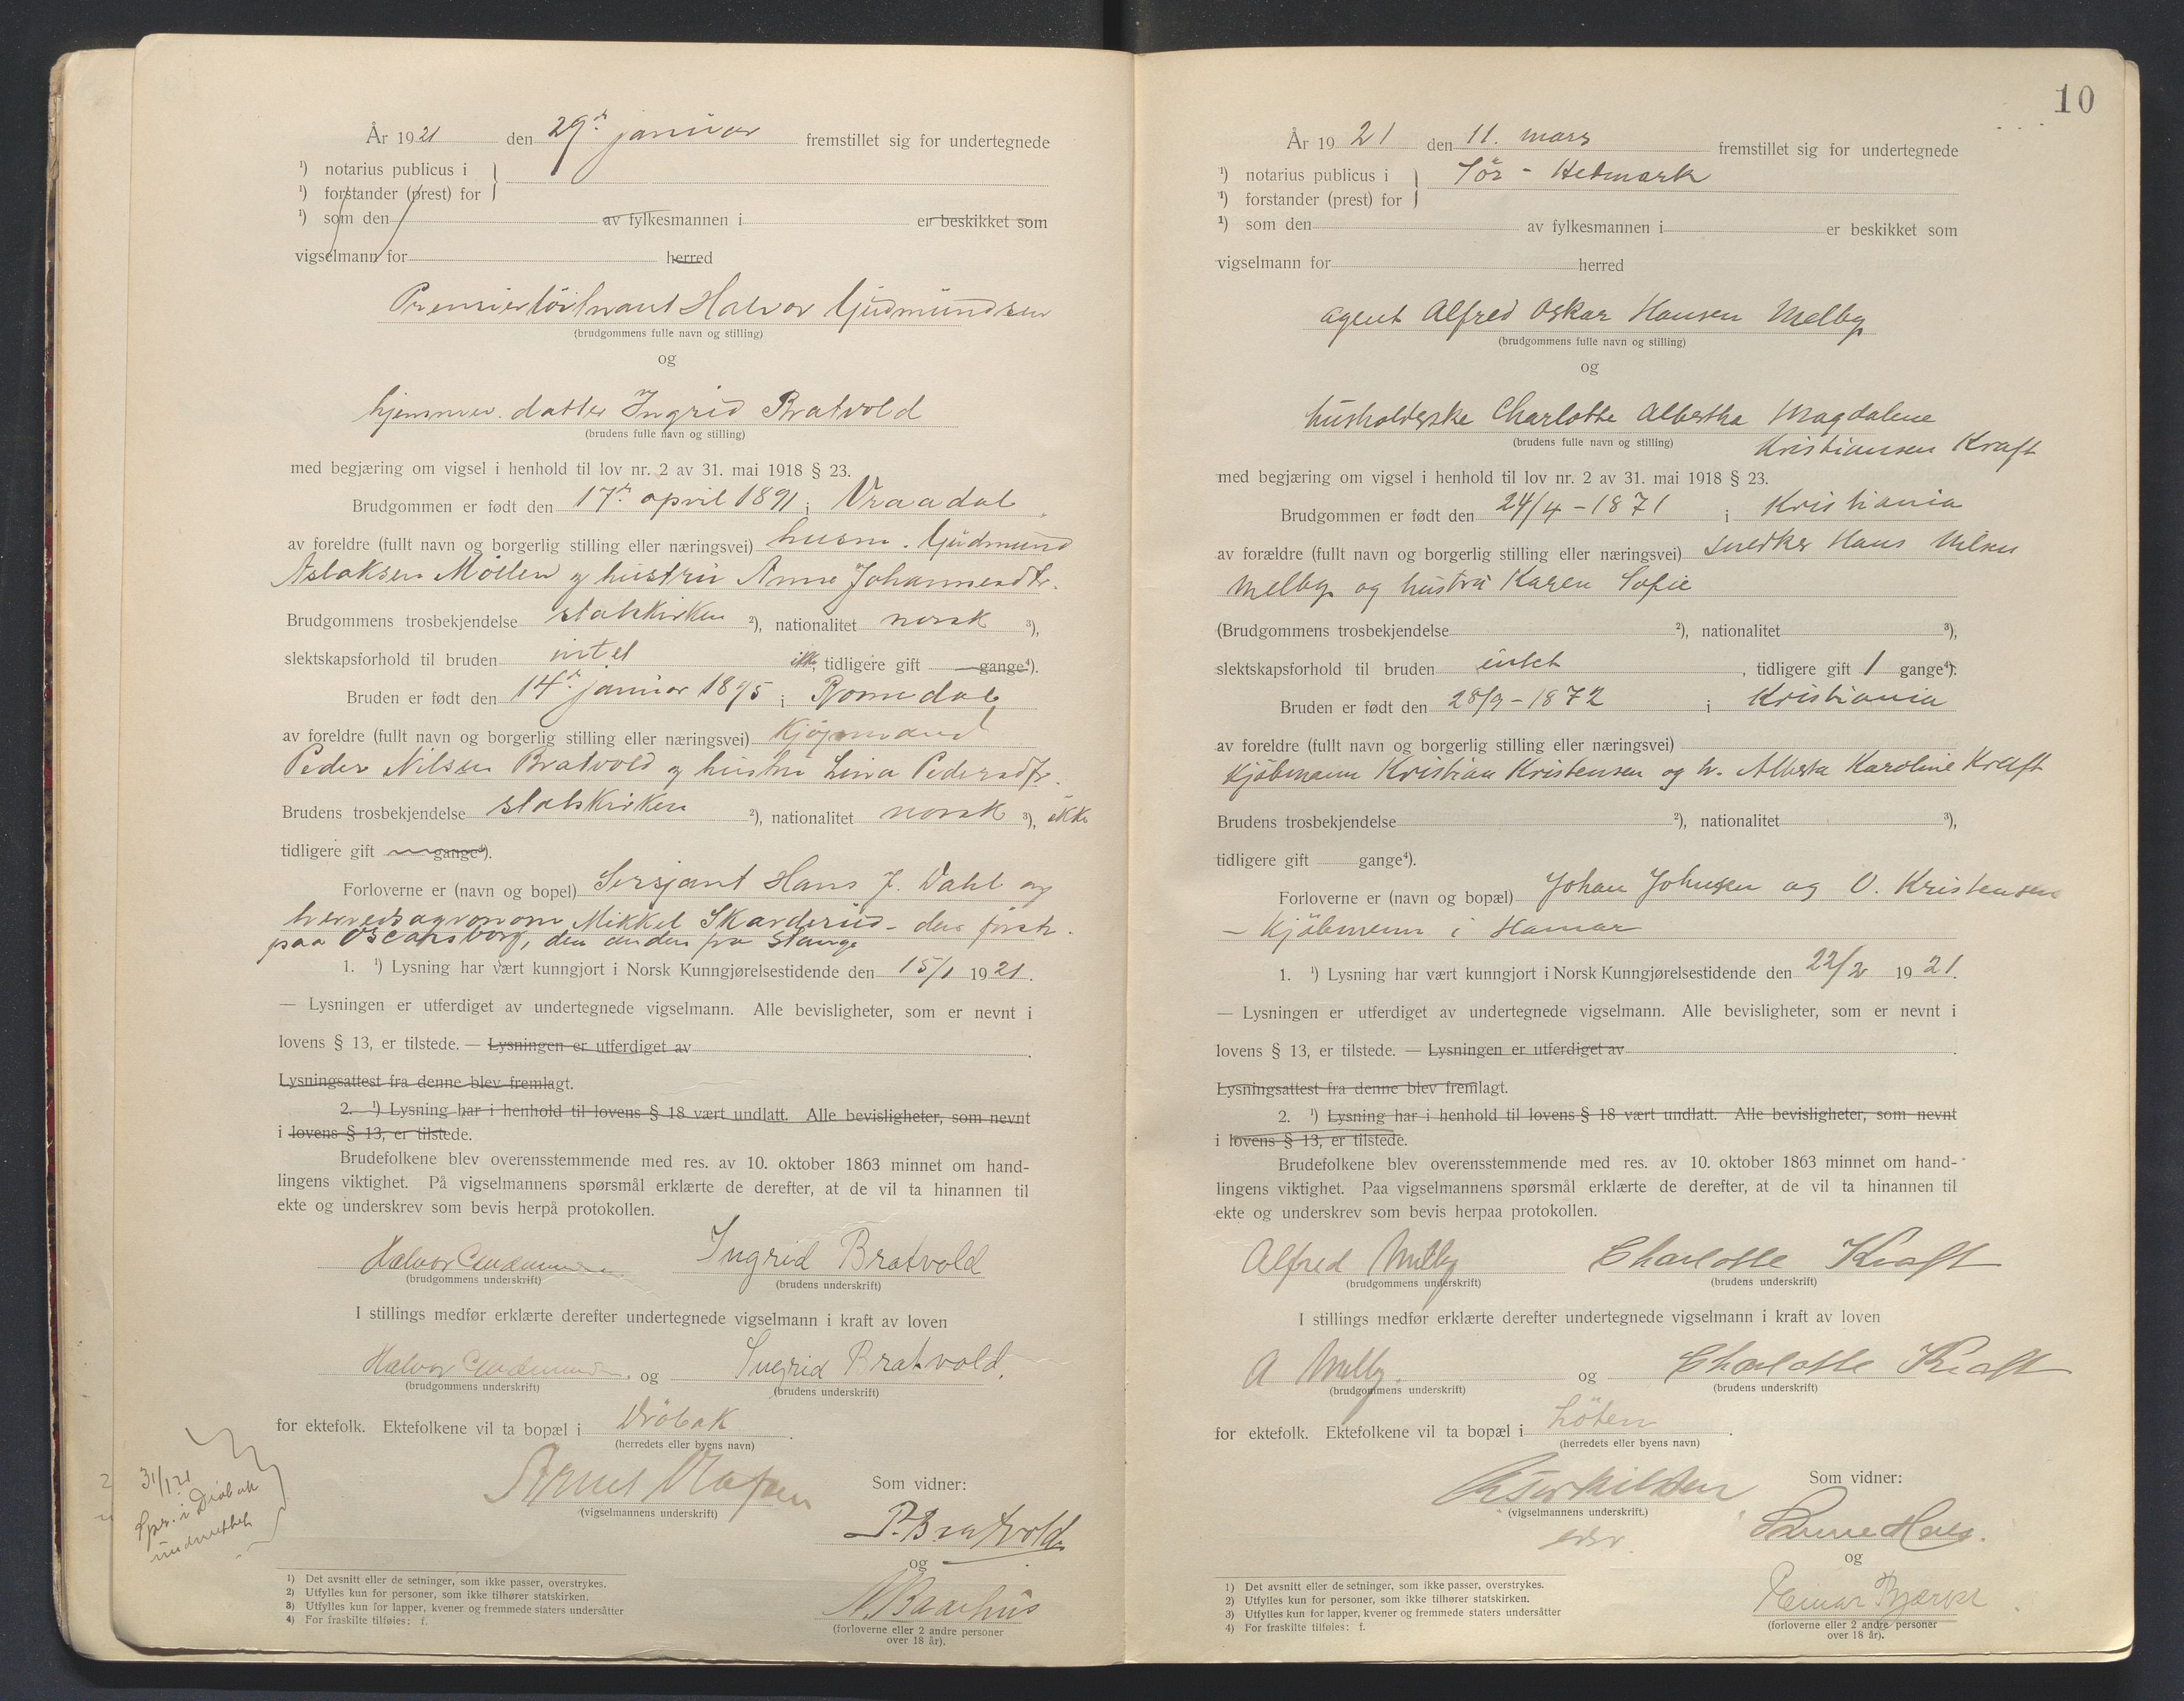 År 1921 den 29de januar fremstillet sig for undertegnede
¹) notarius publicus i
¹) forstander (prest) for
¹) som den av fylkesmannen i er beskikket som
vigselmann for herred
Premierløitnant Halvor Gudmundsen
(brudgommens fulle navn og stilling)
og
hjemmev. datter Ingrid Bratvold
(brudens fulle navn og stilling)
med begjæring om vigsel i henhold til lov nr. 2 av 31. mai 1918 § 23.
Brudgommen er født den 17de april 1891 i Vraadal
av foreldre (fullt navn og borgerlig stilling eller næringsvei) husm. Gudmund
Aslaksen Moen og hustru Anne Johannesdtr.
Brudgommens trosbekjendelse statskirken ²), nationalitet norsk ³),
slektskapsforhold til bruden intet ikke tidligere gift gange⁴).
Bruden er født den 14de januar 1895 i Romedal
av foreldre (fullt navn og borgerlig stilling eller næringsvei) kjøpmand
Peder Nilsen Bratvold og hustru Lina Pedersdtr.
Brudens trosbekjendelse statskirken ²), nationalitet norsk ³), ikke
tidligere gift gange⁴).
Forloverne er (navn og bopel) Sersjant Hans J. Dahl og
herredsagronom Mikkel Skarderud - den første
paa Oscarsborg, den anden fra Stange
1. ¹) Lysning har vært kunngjort i Norsk Kunngjørelsestidende den 15/1 1921.
— Lysningen er utferdiget av undertegnede vigselmann. Alle bevisligheter, som er nevnt i
lovens § 13, er tilstede. — Lysningen er utferdiget av
Lysningsattest fra denne blev fremlagt.
2. ¹) Lysning har i henhold til lovens § 18 vært undlatt. Alle bevisligheter, som nevnt
i lovens § 13, er tilstede.
Brudefolkene blev overensstemmende med res. av 10. oktober 1863 minnet om hand-
lingens viktighet. På vigselmannens spørsmål erklærte de derefter, at de vil ta hinannen til
ekte og underskrev som bevis herpå protokollen.
Halvor Gudmundsen Ingrid Bratvold
(brudgommens underskrift) (brudens underskrift)
I stillings medfør erklærte derefter undertegnede vigselmann i kraft av loven
Halvor Gudmundsen og Ingrid Bratvold.
(brudgommens underskrift) (brudens underskrift)
for ektefolk. Ektefolkene vil ta bopæl i Drøbak
(herredets eller byens navn)
31/1 21
Spr. i Drøbak
underrettet
Som vidner:
(vigselmannens underskrift)
P. Bratvold
og
(forloverne eller 2 andre personer
over 18 år).
1) Det avsnitt eller de setninger, som ikke passer, overstrykes.
2) Utfylles kun for personer, som ikke tilhører statskirken.
3) Utfylles kun for lapper, kvener og fremmede staters undersåtter
4) For fraskilte tilføies: f.
10
År 1921 den 11. mars fremstillet sig for undertegnede
¹) notarius publicus i Sør-Hedmark
¹) forstander (prest) for
¹) som den av fylkesmannen i er beskikket som
vigselmann for herred
agent Alfred Oskar Hansen Melby
(brudgommens fulle navn og stilling)
og
husholderske Charlotte Albertha Magdalene
Kristiansen Kraft
(brudens fulle navn og stilling)
med begjæring om vigsel i henhold til lov nr. 2 av 31. mai 1918 § 23.
Brudgommen er født den 24/4 - 1871 i Kristiania
av forældre (fullt navn og borgerlig stilling eller næringsvei) snedker Hans Nilsen
Melby og hustru Karen Sofie
(Brudgommens trosbekjendelse ²), nationalitet ³),
slektskapsforhold til bruden intet, tidligere gift 1 gange⁴).
Bruden er født den 28/9 - 1872 i Kristiania
av foreldre (fullt navn og borgerlig stilling eller næringsvei)
Kjøbmann Kristian Kristensen og h. Alberta Karoline Kraft
Brudens trosbekjendelse ²), nationalitet ³),
tidligere gift gange⁴).
Forloverne er (navn og bopæl) Johan Johnsen og O. Kristensen
- Kjøbmenn i Hamar
1. ¹) Lysning har vært kunngjort i Norsk Kunngjørelsestidende den 22/2 1921.
— Lysningen er utferdiget av undertegnede vigselmann. Alle bevisligheter, som er nevnt i
lovens § 13, er tilstede. — Lysningen er utferdiget av
Lysningsattest fra denne blev fremlagt.
2. ¹) Lysning har i henhold til lovens § 18 vært undlatt. Alle bevisligheter, som nevnt
i lovens § 13, er tilstede.
Brudefolkene blev overensstemmende med res. av 10. oktober 1863 minnet om hand-
lingens viktighet. Paa vigselmannens spørsmål erklærte de derefter, at de vil ta hinannen til
ekte og underskrev som bevis herpaa protokollen.
Alfred Melby Charlotte Kraft
(brudgommens underskrift) (brudens underskrift)
I stillings medfør erklærte derefter undertegnede vigselmann i kraft av loven
A Melby. og Charlotte Kraft
(brudgommens underskrift) (brudens underskrift)
for ektefolk. Ektefolkene vil ta bopæl i Løten
(herredets eller byens navn)
Som vidner:
(vigselmannens underskrift.)
og
Einar Bjerke
(forloverne eller 2 andre personer
over 18 år).
1) Det avsnitt eller de setninger, som ikke passer, overstrykes.
2) Utfylles kun for personer, som ikke tilhører statskirken.
3) Utfylles kun for lapper, kvener og fremmede staters undersåtter
4) For fraskilte tilføies: f.